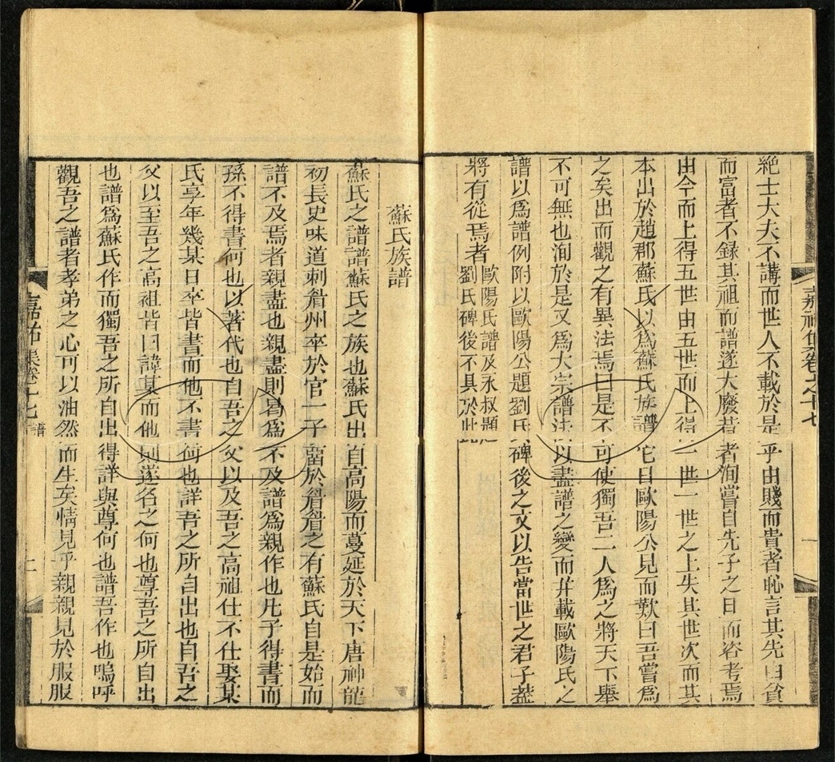 嘉祐集卷之十七
絶士大夫不講而世人不載於是乎由賤而貴者恥言其先由貧
而富者不錄其祖而譜遂大廢昔者洵嘗自先子之日而咨考焉
由今而上得五世由五世而上得一世一世之上失其世次而其
本出於趙郡蘇氏以爲蘇氏族譜它日歐陽公見而歎曰吾嘗爲
之矣出而觀之有異法焉曰是不可使獨吾二人爲之將天下舉
不可無也洵於是又爲大宗譜法以盡譜之變而并載歐陽氏之
譜以爲譜例附以歐陽公題劉氏碑後之文以告當世之君子葢
將有從焉者
歐陽氏譜及永叔題
劉氏碑後不具於此
蘇氏族譜
蘇氏之譜譜蘇氏之族也蘇氏出自高陽而蔓延於天下唐神龍
初長史味道刺眉州卒於官一子留於眉眉之有蘇氏自是始而
譜不及焉者親盡也親盡則曷爲不及譜爲親作也凡子得書而
孫不得書何也以著代也自吾之父以及吾之高祖仕不仕娶某
氏享年幾某日卒皆書而他不書何也詳吾之所自出也自吾之
父以至吾之高祖皆曰諱某而他則遂名之何也尊吾之所自出
也譜爲蘇氏作而獨吾之所自出得詳與尊何也譜吾作也嗚呼
觀吾之譜者孝弟之心可以油然而生矣情見乎親親見於服服
嘉祐集卷十七 譜